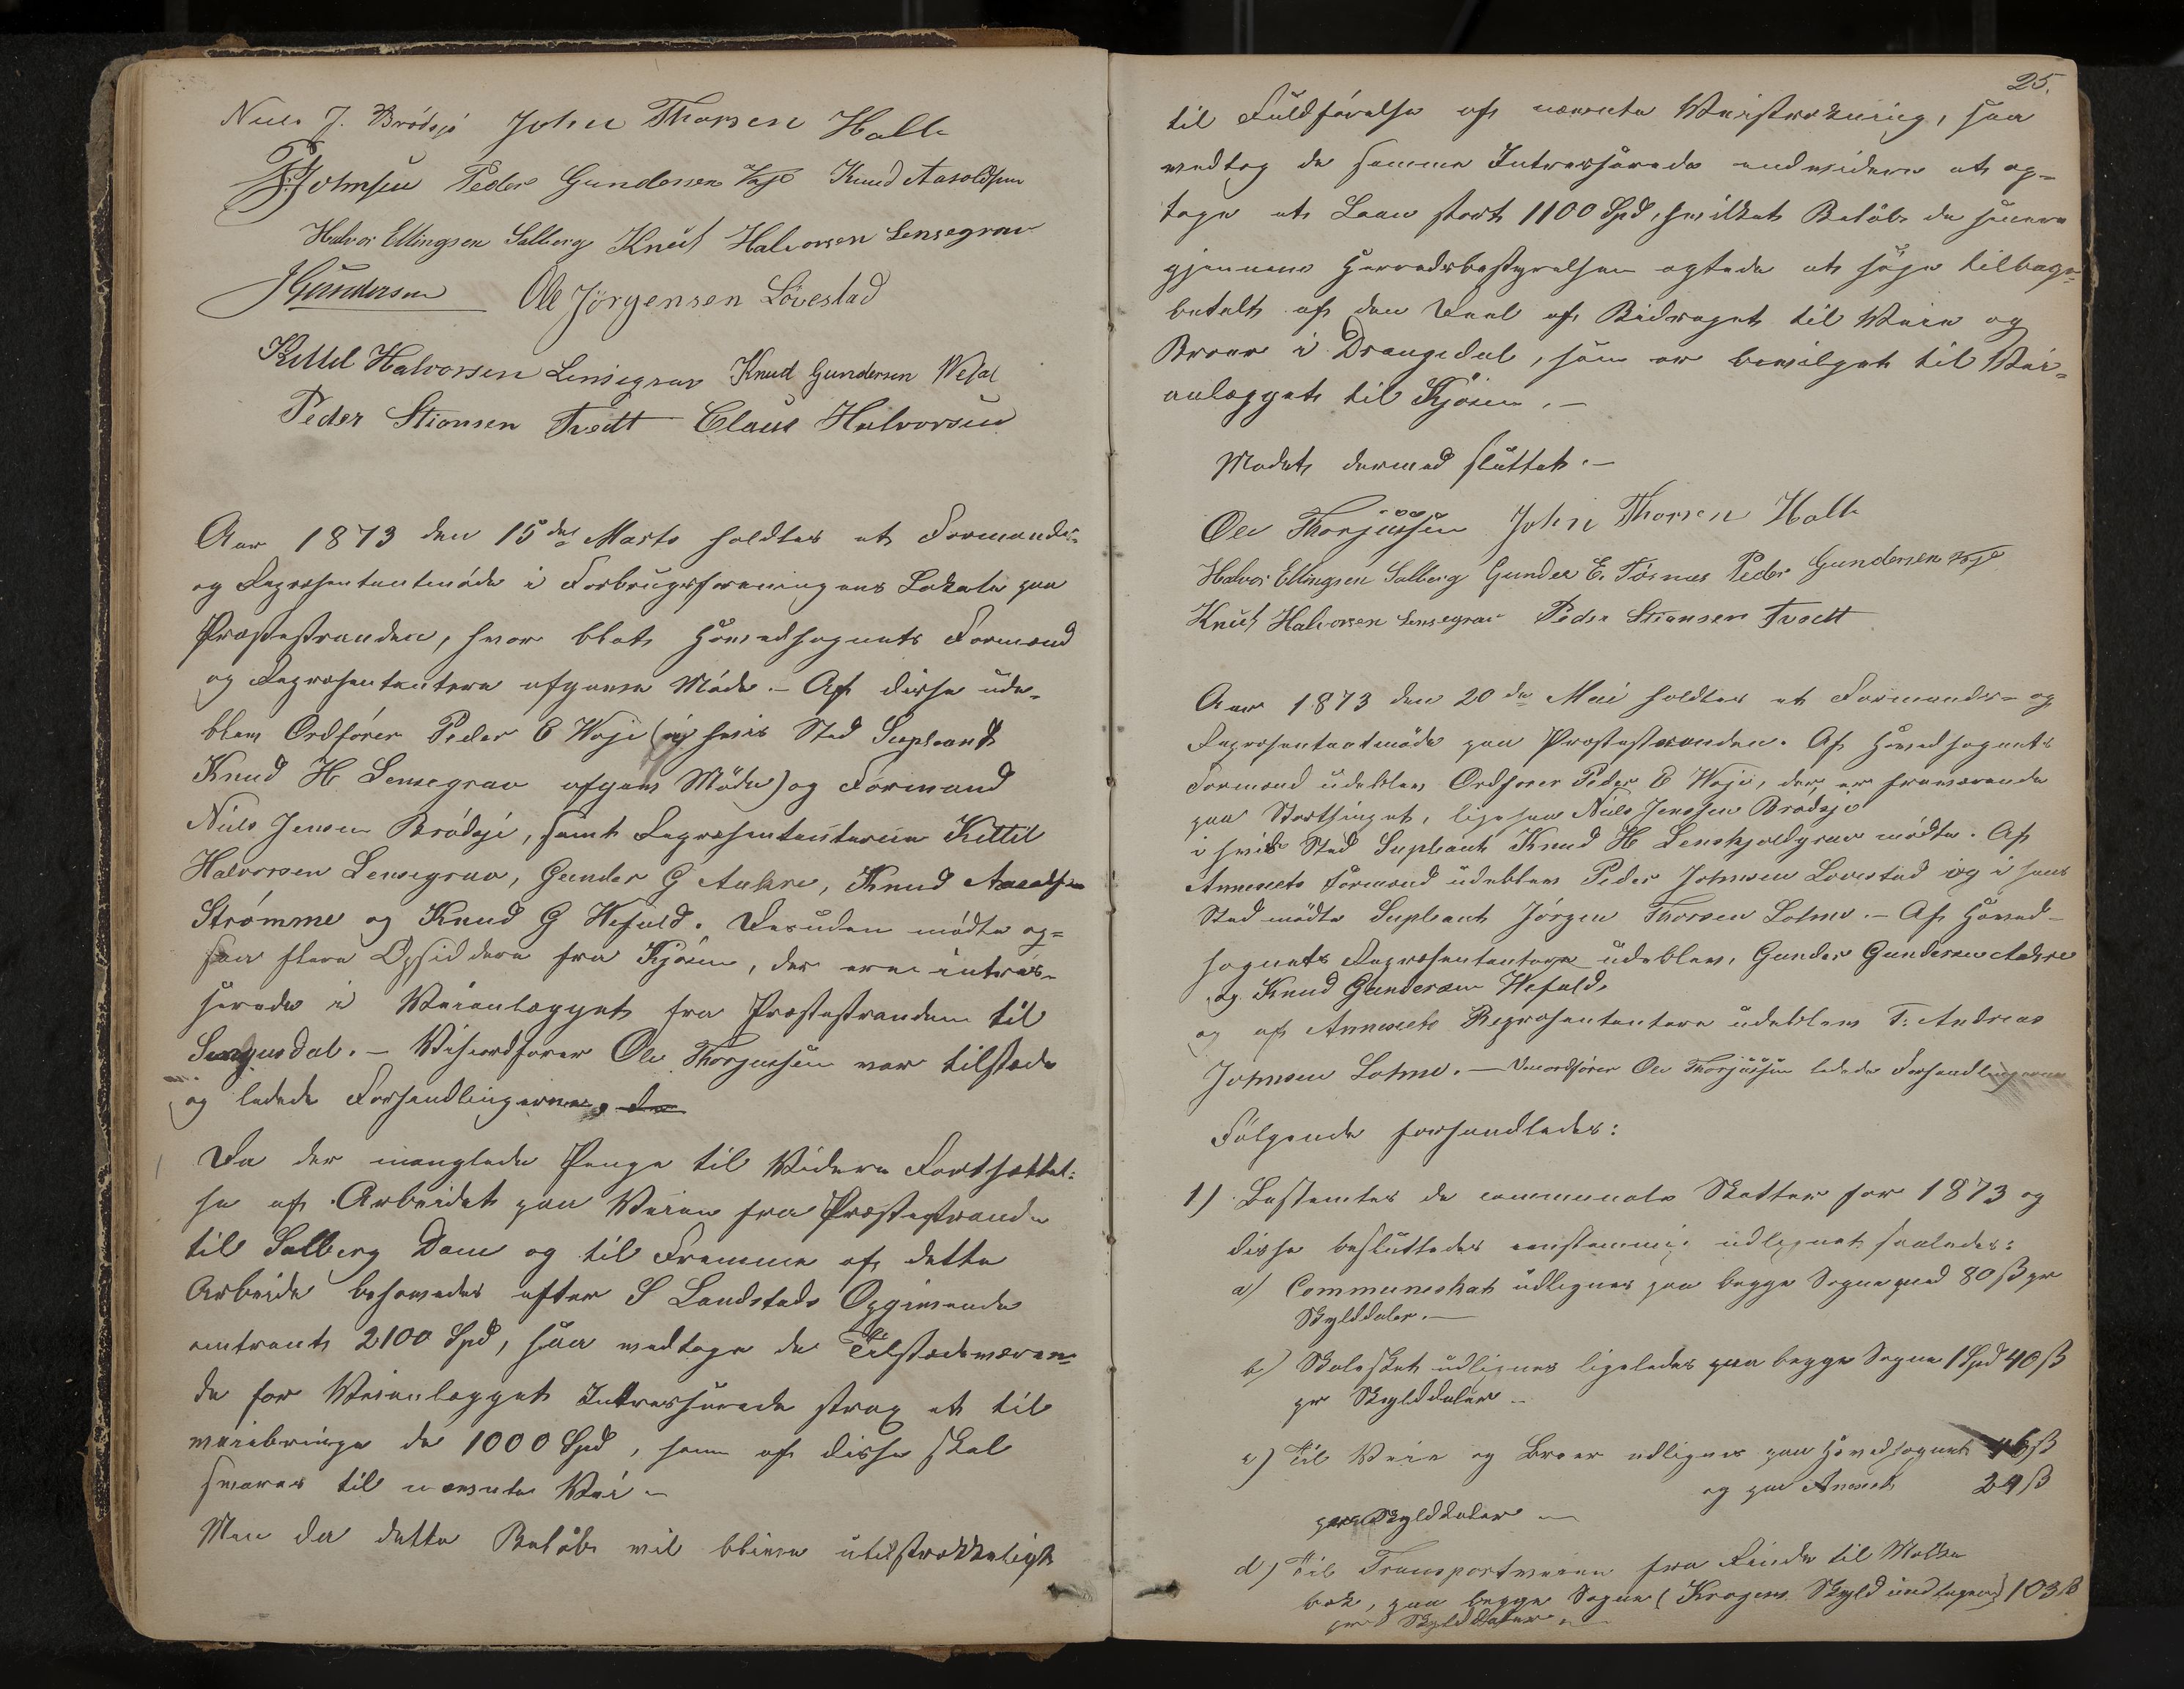 Niels J. Brødsjø John Thorsen Holte
P. Johnsen Peder Gundersen Voje Knud Aasoldsen
Halvor Ellingsen Solberg Knut Halvorsen Lensegrav
J Gundersen Ole Jörgensen Lövestad
Kittel Halvorsen Lensegrav Knud Gundersen Wefal
Peder Stiansen Tvedt Claus Halvorsen
Aar 1873 den 15de Marts holdtes et Formands-
og Repræsentantmøde i Forbrugsforeningens Lokale paa
Præstestranden, hvor blot Hovedsognets Formænd
og Repræsentantere afgave Møde. – Af disse ude-
blev Ordfører Peder E Woje (i hvis Sted Supleant
Knud H Lensegrav afgav Møde) og Formand
Niels Jensen Brødsjø, samt Repræsentanterne Kittil
Halvorsen Lensegrav, Gunder G Aakre, Knud Aasoldsen
Strømme og Knud G Wefald. Desuden mødte og=
saa flere Opsiddere fra Kjösen, der ere intres-
serede i Veianlægget fra Præstestranden til
Sengusdal. – Viseordfører Ole Thorjussen var tilstede
og ledede Forhandlingerne, da
Da der manglede Penge til Videre Fortsættel=
se af Arbeidet paa Veien fra Præstestranden
til Solberg Dam og til Fremme af dette
Arbeide behøvedes efter S Landstads Opgivende
omtrent 2100 Spd, saa vedtoge de Tilstedeværen=
de for Veianlægget Intresserede strax at til
veiebringe de 1000 Spd, som af disse skal
svares til nævnte Vei –
Men da dette Beløb vil blive utilstrækkeligt
25.
til Fuldførelse af nævnte Veistrækning, saa
vedtog de samme Intresserede endvidere at op=
tage et Laan stort 1100 Spd, hvilket Beløb de senere
gjennem Herredsbestyrelsen agtede at søge tilbage=
betalt af den Deel af Bidraget til Veie og
Broer i Drangedal, som er bevilget til Vei=
anlægget til Kjösen. –
Mødet dermed sluttet. –
Ole Thorjussen John Thorsen Holte
Halvor Ellingsen Solberg Gunder E. Törnes Peder Gundersen Voje
Knut Halvorsen Lensegrav Peder Stiansen Tvedt
Aar 1873 den 20de Mai holdtes et Formands- og
Repræsentantmøde paa Præstestranden. Af Hovedsognets
Formænd udeblev Ordfører Peder E Woje, der er fraværende
paa Storthinget, ligesaa Niels Jenssen Brødsjø
i hvis Sted Supleant Knud H Lenskjoldgrav mødte. Af
Annexets Formænd udeblev Peder Johnsen Lovestad og i hans
Sted mødte Supleant Jörgen Thorsen Lohne. – Af Hoved-
sognets Repræsentantere udeblev, Gunder Gundersen Aakre
og Knud Gundersen Wefald,
og af Annexets Repræsentantere udeblev T. Andreas
Johnsen Lohne. – Viceordfører Ole Thorjussen ledede Forhandlingerne
Følgende forhandledes:
1) Bestemtes de communale Skatter for 1873 og
disse besluttedes eenstemmig udlignet saaledes:
a) Communeskat udlignes paa begge Sogne med 80 ß pr
Skylddaler. –
b) Skoleskat udlignes ligeledes paa begge Sogne 1 Spd 40 ß
pr Skylddaler –
c) Til Veie og Broer udlignes paa Hovedsognet 46 ß
og paa Annexet 24 ß
pr Skylddaler –
d) Til Transportveien fra Finde til Molke
bæk, paa begge Sogne (Kragerø Skyld undtagen) 103 ß
pr Skylddaler –